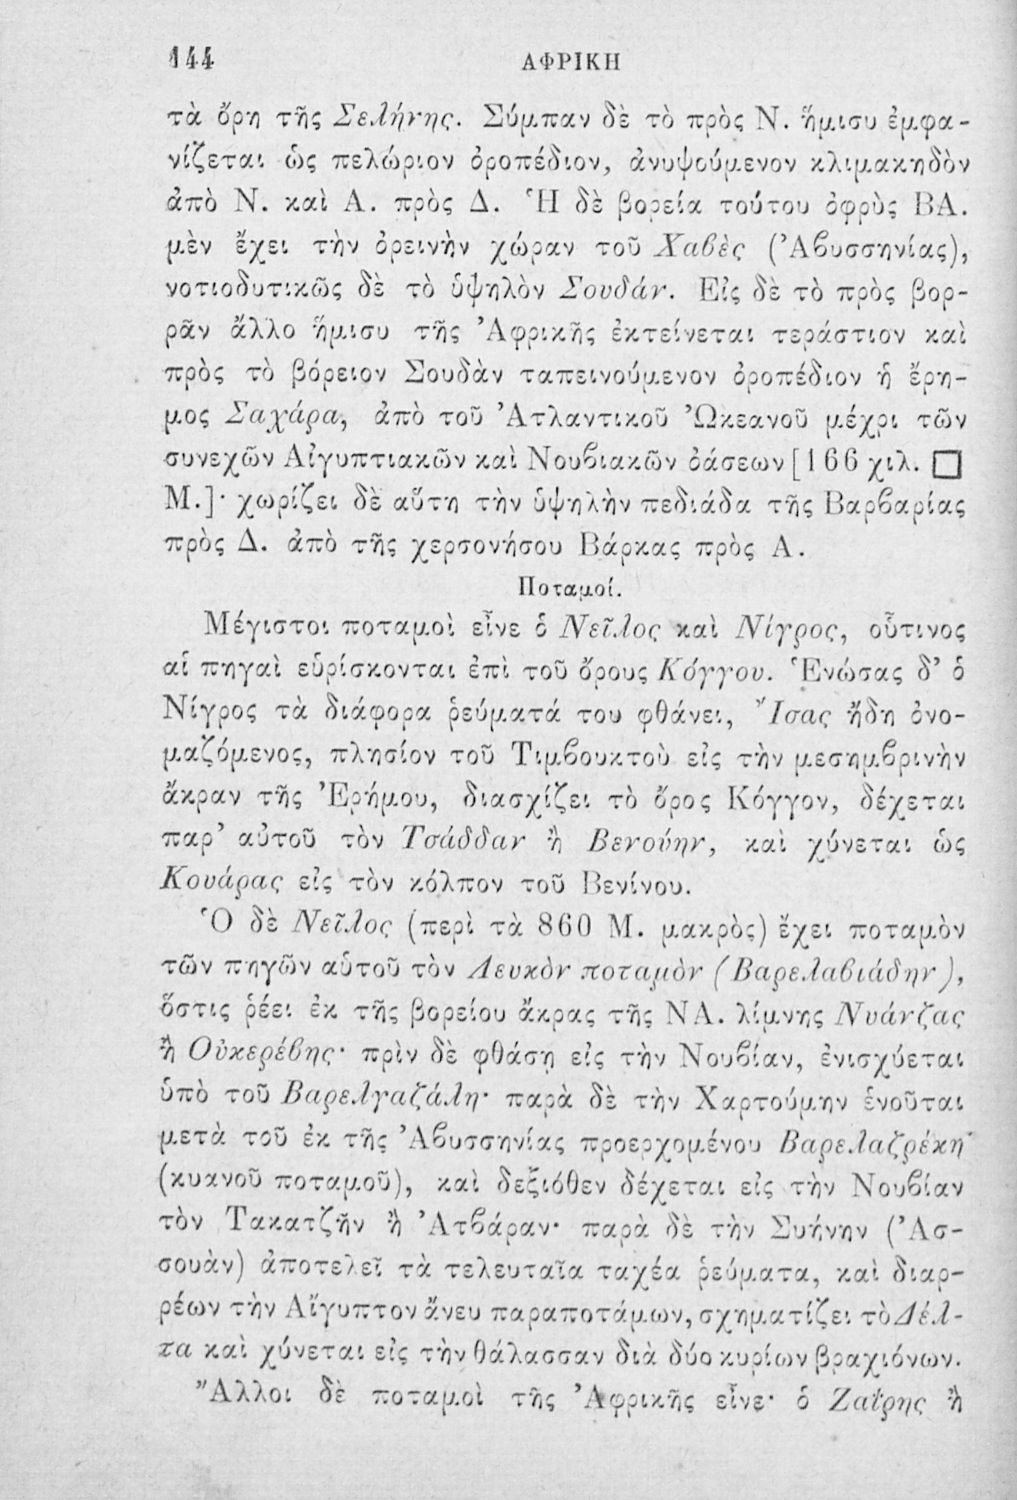 144 ΑΦΡΙΚΗ
τὰ ὄρη τῆς Σελήνης. Σύμπαν δὲ τὸ πρὸς Ν. ἥμισυ ἐμφα-
νίζεται ὡς πελώριον ὀροπέδιον, ἀνυψούμενον κλιμακηδὸν
ἀπὸ Ν. καὶ Α. πρὸς Δ. Ἡ δὲ βορεία τούτου ὀφρὺς ΒΑ.
μὲν ἔχει τὴν ὀρεινὴν χώραν τοῦ Χαβὲς (Ἀβυσσηνίας),
νοτιοδυτικῶς δὲ τὸ ὑψηλὸν Σουδάν. Εἰς δὲ τὸ πρὸς βορ-
ρᾶν ἄλλο ἥμισυ τῆς Ἀφρικῆς ἐκτείνεται τεράστιον καὶ
πρὸς τὸ βόρειον Σουδὰν ταπεινούμενον ὀροπέδιον ἡ ἔρη-
μος Σαχάρα, ἀπὸ τοῦ Ἀτλαντικοῦ Ὠκεανοῦ μέχρι τῶν
συνεχῶν Αἰγυπτιακῶν καὶ Νουβιακῶν ὀάσεων [166 χιλ. □
Μ.]· χωρίζει δὲ αὕτη τὴν ὑψηλὴν πεδιάδα τῆς Βαρβαρίας
πρὸς Δ. ἀπὸ τῆς χερσονήσου Βάρκας πρὸς Α.
Ποταμοί.
Μέγιστοι ποταμοὶ εἶνε ὁ Νεῖλος καὶ Νίγρος, οὗτινος
αἱ πηγαὶ εὑρίσκονται ἐπὶ τοῦ ὄρους Κόγγου. Ἑνώσας δ’ ὁ
Νίγρος τὰ διάφορα ῥεύματά του φθάνει, Ἴσας ἤδη ὀνο-
μαζόμενος, πλησίον τοῦ Τιμβουκτοὺ εἰς τὴν μεσημβρινὴν
ἄκραν τῆς Ἐρήμου, διασχίζει τὸ ὄρος Κόγγον, δέχεται
παρ’ αὐτοῦ τὸν Τσάδδαν ἢ Βενούην, καὶ χύνεται ὡς
Κουάρας εἰς τὸν κόλπον τοῦ Βενίνου.
Ὁ δὲ Νεῖλος (περὶ τὰ 860 Μ. μακρὸς) ἔχει ποταμὸν
τῶν πηγῶν αὐτοῦ τὸν Λευκὸν ποταμὸν (Βαρελαβιάδην),
ὅστις ῥέει ἐκ τῆς βορείου ἄκρας τῆς ΝΑ. λίμνης Νυάνζας
ἢ Οὐκερέβης· πρὶν δὲ φθάσῃ εἰς τὴν Νουβίαν, ἐνισχύεται
ὑπὸ τοῦ Βαρελγαζάλη· παρὰ δὲ τὴν Χαρτούμην ἑνοῦται
μετὰ τοῦ ἐκ τῆς Ἀβυσσηνίας προερχομένου Βαρελαζρέκη
(κυανοῦ ποταμοῦ), καὶ δεξιόθεν δέχεται εἰς τὴν Νουβίαν
τὸν Τακατζῆν ἢ Ἀτβάραν· παρὰ δὲ τὴν Συήνην (Ἀσ-
σουὰν) ἀποτελεῖ τὰ τελευταῖα ταχέα ῥεύματα, καὶ διαρ-
ρέων τὴν Αἴγυπτον ἄνευ παραποτάμων, σχηματίζει τὸ Δέλ-
τα καὶ χύνεται εἰς τὴν θάλασσαν διὰ δύο κυρίων βραχιόνων.
Ἄλλοι δὲ ποταμοὶ τῆς Ἀφρικῆς εἶνε· ὁ Ζαΐρης ἢ